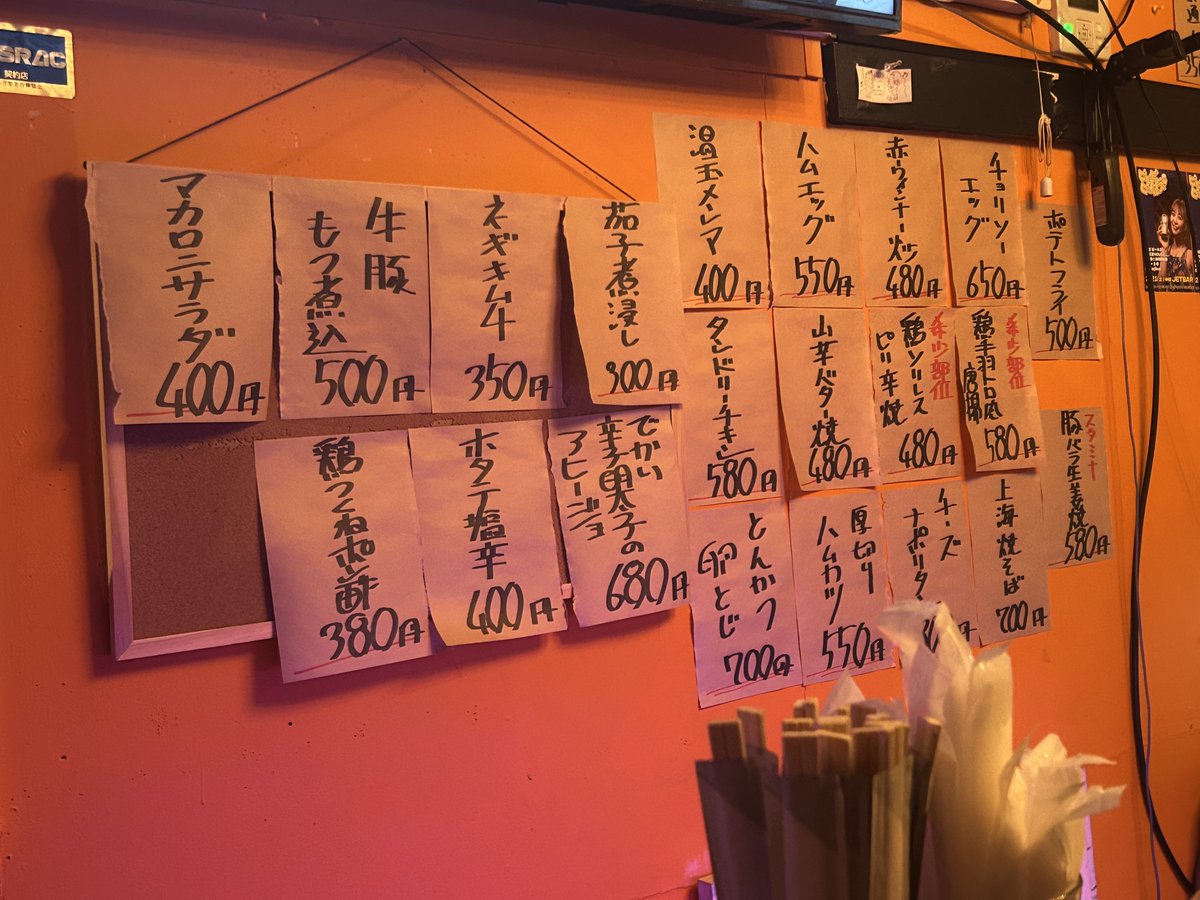 SRAC
契約店
マカロニサラダ
400円
牛豚
もつ煮込
500円
ネギキムチ
350円
茄子煮浸し
300円
鶏つくねポン酢
380円
ホタテ塩辛
400円
でかい
辛子明太子の
アヒージョ
680円
温玉メンマ
400円
ハムエッグ
550円
赤ウインナー炒
480円
チョリソー
エッグ
650円
ポテトフライ
500円
タンドリーチキン
580円
山芋バター焼
480円
希少部位
鶏ソリレス
ピリ辛焼
480円
希少部位
鶏手羽トロ
唐揚
580円
スタミナ
豚バラ生姜焼
580円
とんかつ
卵とじ
700円
厚切り
ハムカツ
550円
チーズ
ナポリタン
上海焼そば
700円